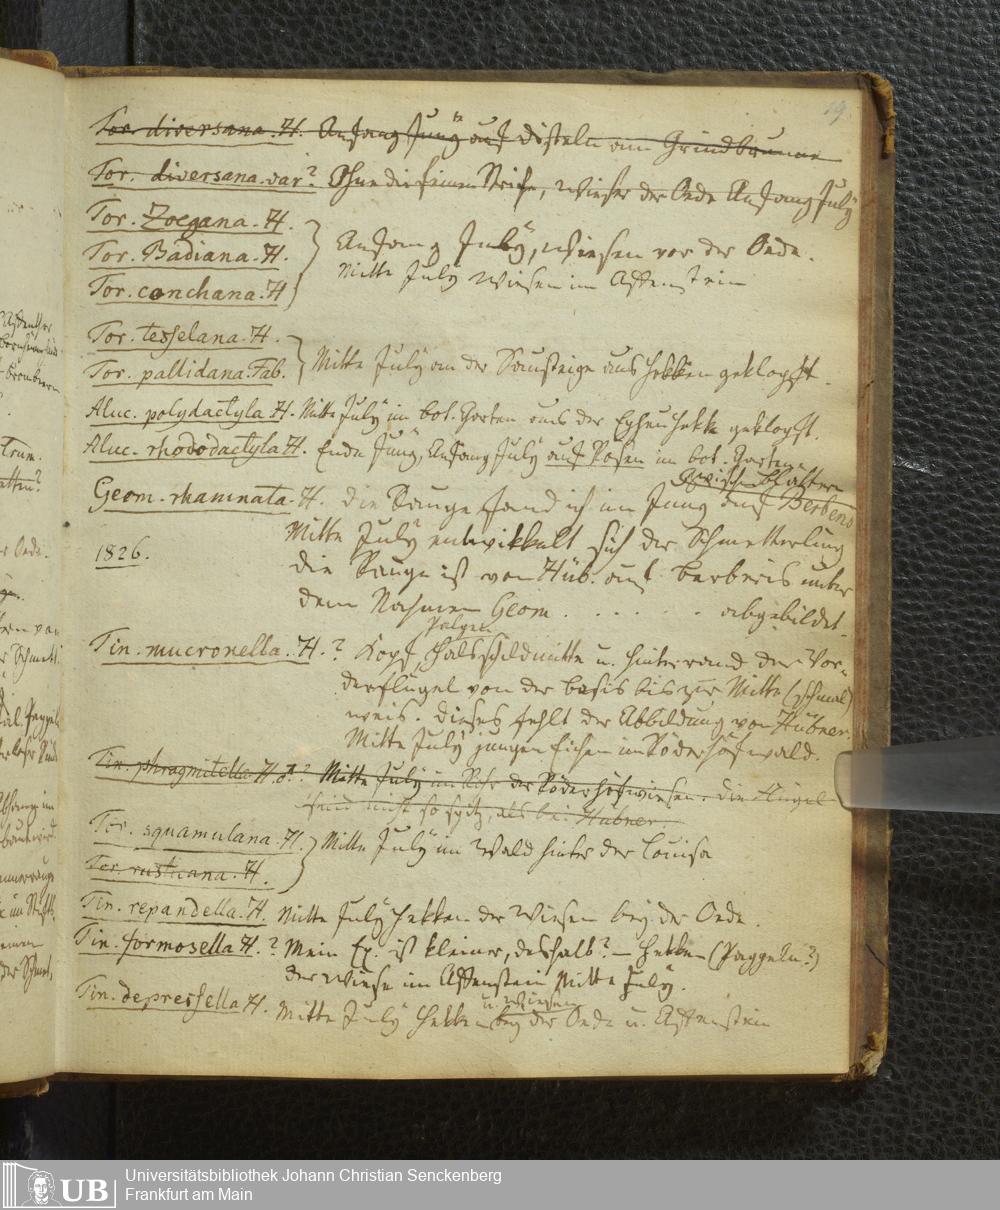 19
Tor. diversana. H. Anfang Juny auf Disteln am Grindbrunnen
Tor. diversana. var? Ohne die feinen Striche, Wiesen der Oede Anfang July
Tor. Zoegana. H.
Tor. Badiana. H.
Anfang July, Wiesen vor der Oede.
Mitte July Wiesen im Affenstein
Tor. conchana. H
Tor. tesselana. H.
Tor. pallidana. Fab.
Mitte July an der Saustiege aus Hekken geklopft.
Aluc. polydactyla H. Mitte July im bot. Garten aus der Epheuhekke geklopft.
Aluc. rhododactyla H. Ende Juny, Anfang July auf Rosen im bot. Garten
Geom. rhamnata. H. die Raupe fand ich im Juny auf Berberis
zwischen Blättern
Mitte July entwikkelt sich der Schmetterling
1826.
die Raupe ist von Hüb. auf Berberis unter
dem Nahmen Geom. . . . . . . abgebildet.
Tin. mucronella. H. ? Kopf, Halsschildmitte u. Hinterrand der Vor-
Palpen
derflügel von der Basis bis zur Mitte (schmal)
weis. dieses fehlt der Abbildung von Hübner.
Mitte July jungen Eichen im Röderhöfwald.
Tin. phragmitella H. ♂. ? Mitte July im Rohr der Röderhöfwiesen. die Flügel
sind nicht so spitz, als bei Hübner.
Tor. squamulana. H.
Mitte July im Wald hinter der Louisa
Tor. rusticana. H.
Tin. repandella. H. Mitte July Hekken der Wiesen bey der Oede
Tin. formosella H. ? Mein Ex. ist kleiner, deshalb? — Hekken (Pappeln?)
der Wiese im Affenstein Mitte July.
Tin. depressella H. Mitte July Hekken bey der Oede u. Affenstein
u. Wiesen
Universitätsbibliothek Johann Christian Senckenberg
Frankfurt am Main
UB